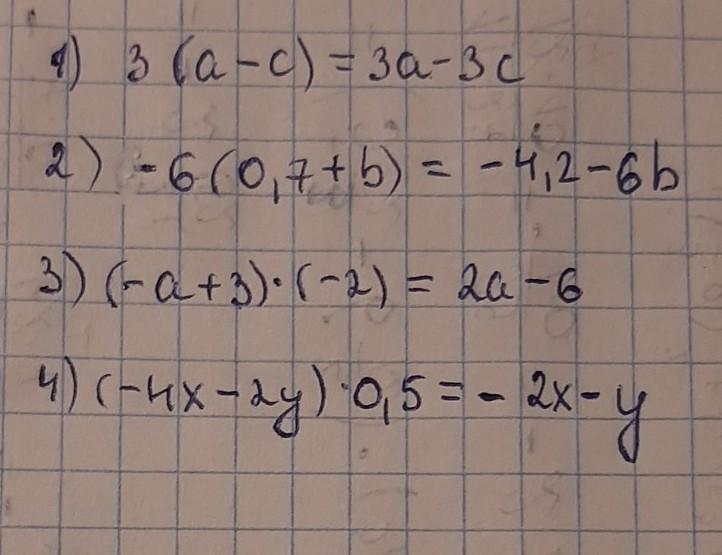 1) 3 (a-c) = 3a-3c
2) -6(0,7+b) = -4,2-6b
3) (-a+3)·(-2) = 2a-6
4) (-4x-2y)·0,5 = -2x-y